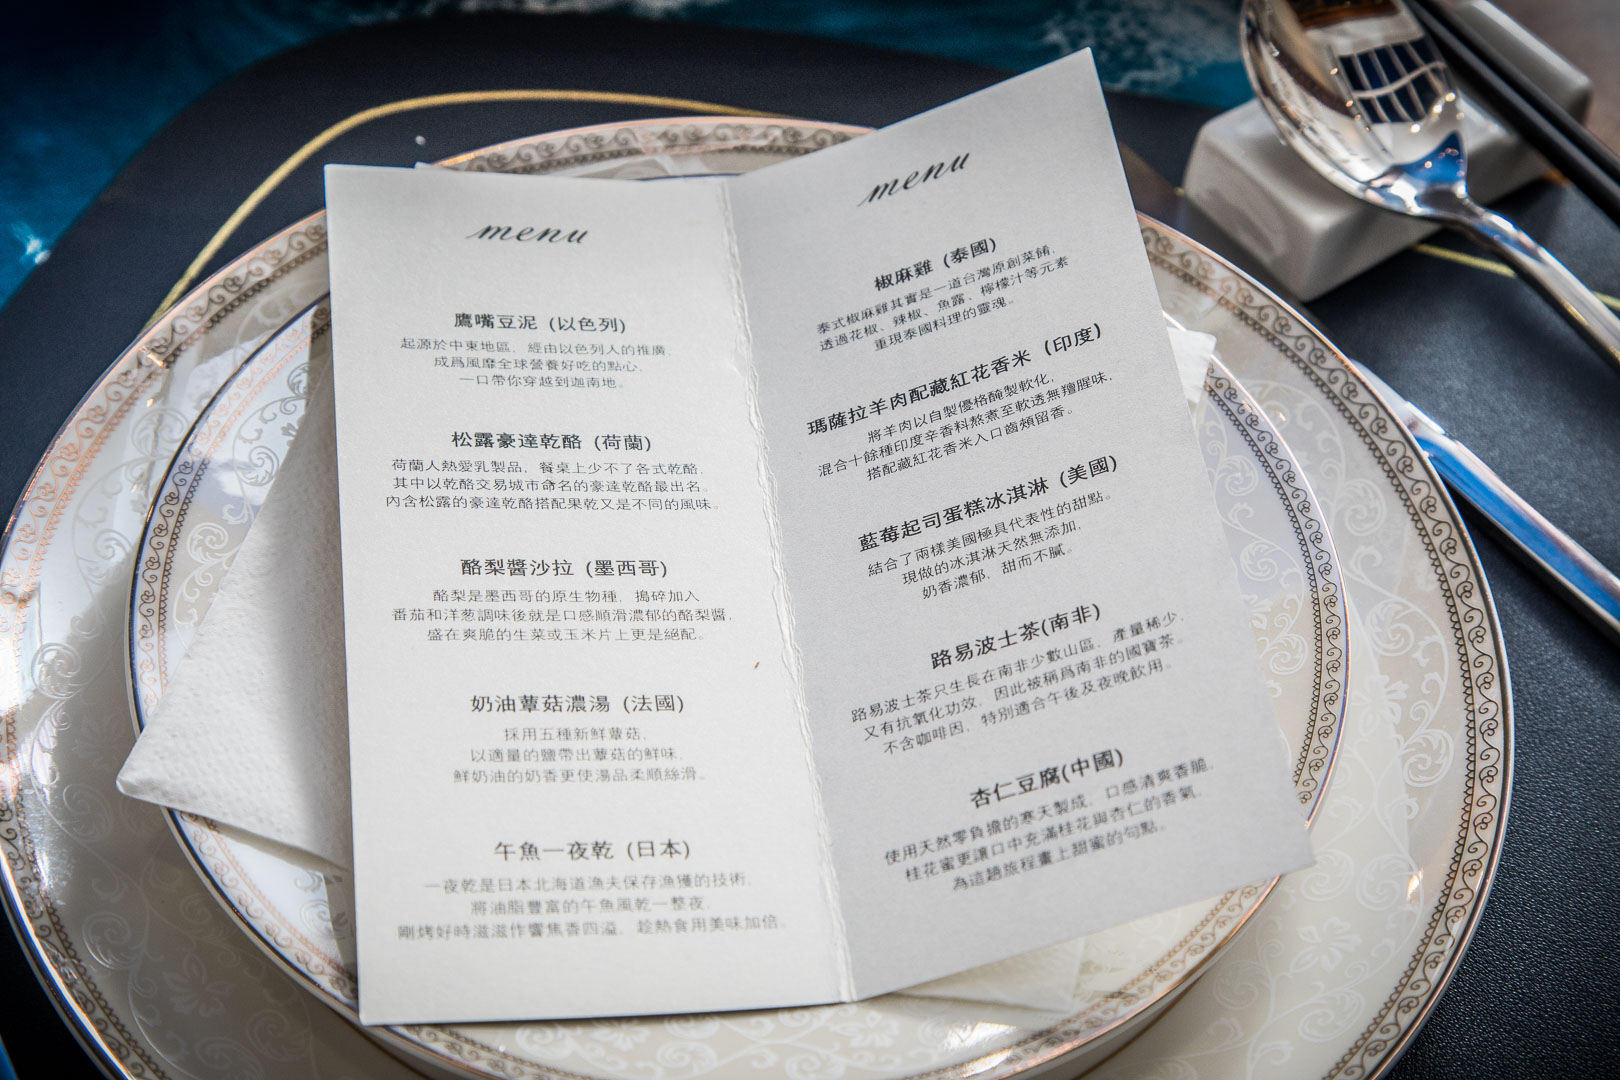 menu
鷹嘴豆泥 (以色列)
起源於中東地區，經由以色列人的推廣，
成爲風靡全球營養好吃的點心，
一口帶你穿越到迦南地。
松露豪達乾酪 (荷蘭)
荷蘭人熱愛乳製品，餐桌上少不了各式乾酪，
其中以乾酪交易城市命名的豪達乾酪最出名。
內含松露的豪達乾酪搭配果乾又是不同的風味。
酪梨醬沙拉 (墨西哥)
酪梨是墨西哥的原生物種，搗碎加入
番茄和洋葱調味後就是口感順滑濃郁的酪梨醬，
盛在爽脆的生菜或玉米片上更是絕配。
奶油蕈菇濃湯 (法國)
採用五種新鮮蕈菇，
以適量的鹽帶出蕈菇的鮮味，
鮮奶油的奶香更使湯品柔順絲滑。
午魚一夜乾 (日本)
一夜乾是日本北海道漁夫保存漁獲的技術，
將油脂豐富的午魚風乾一整夜，
剛烤好時滋滋作響焦香四溢，趁熱食用美味加倍。
menu
椒麻雞 (泰國)
泰式椒麻雞其實是一道台灣原創菜餚，
透過花椒、辣椒、魚露、檸檬汁等元素
重現泰國料理的靈魂。
瑪薩拉羊肉配藏紅花香米 (印度)
將羊肉以自製優格醃製軟化，
混合十餘種印度辛香料熬煮至軟透無羶腥味，
搭配藏紅花香米入口齒頰留香。
藍莓起司蛋糕冰淇淋 (美國)
結合了兩樣美國極具代表性的甜點。
現做的冰淇淋天然無添加，
奶香濃郁，甜而不膩。
路易波士茶(南非)
路易波士茶只生長在南非少數山區，產量稀少，
又有抗氧化功效，因此被稱爲南非的國寶茶。
不含咖啡因，特別適合午後及夜晚飲用。
杏仁豆腐(中國)
使用天然零負擔的寒天製成，口感清爽香脆，
桂花蜜更讓口中充滿桂花與杏仁的香氣，
為這趟旅程畫上甜蜜的句點。